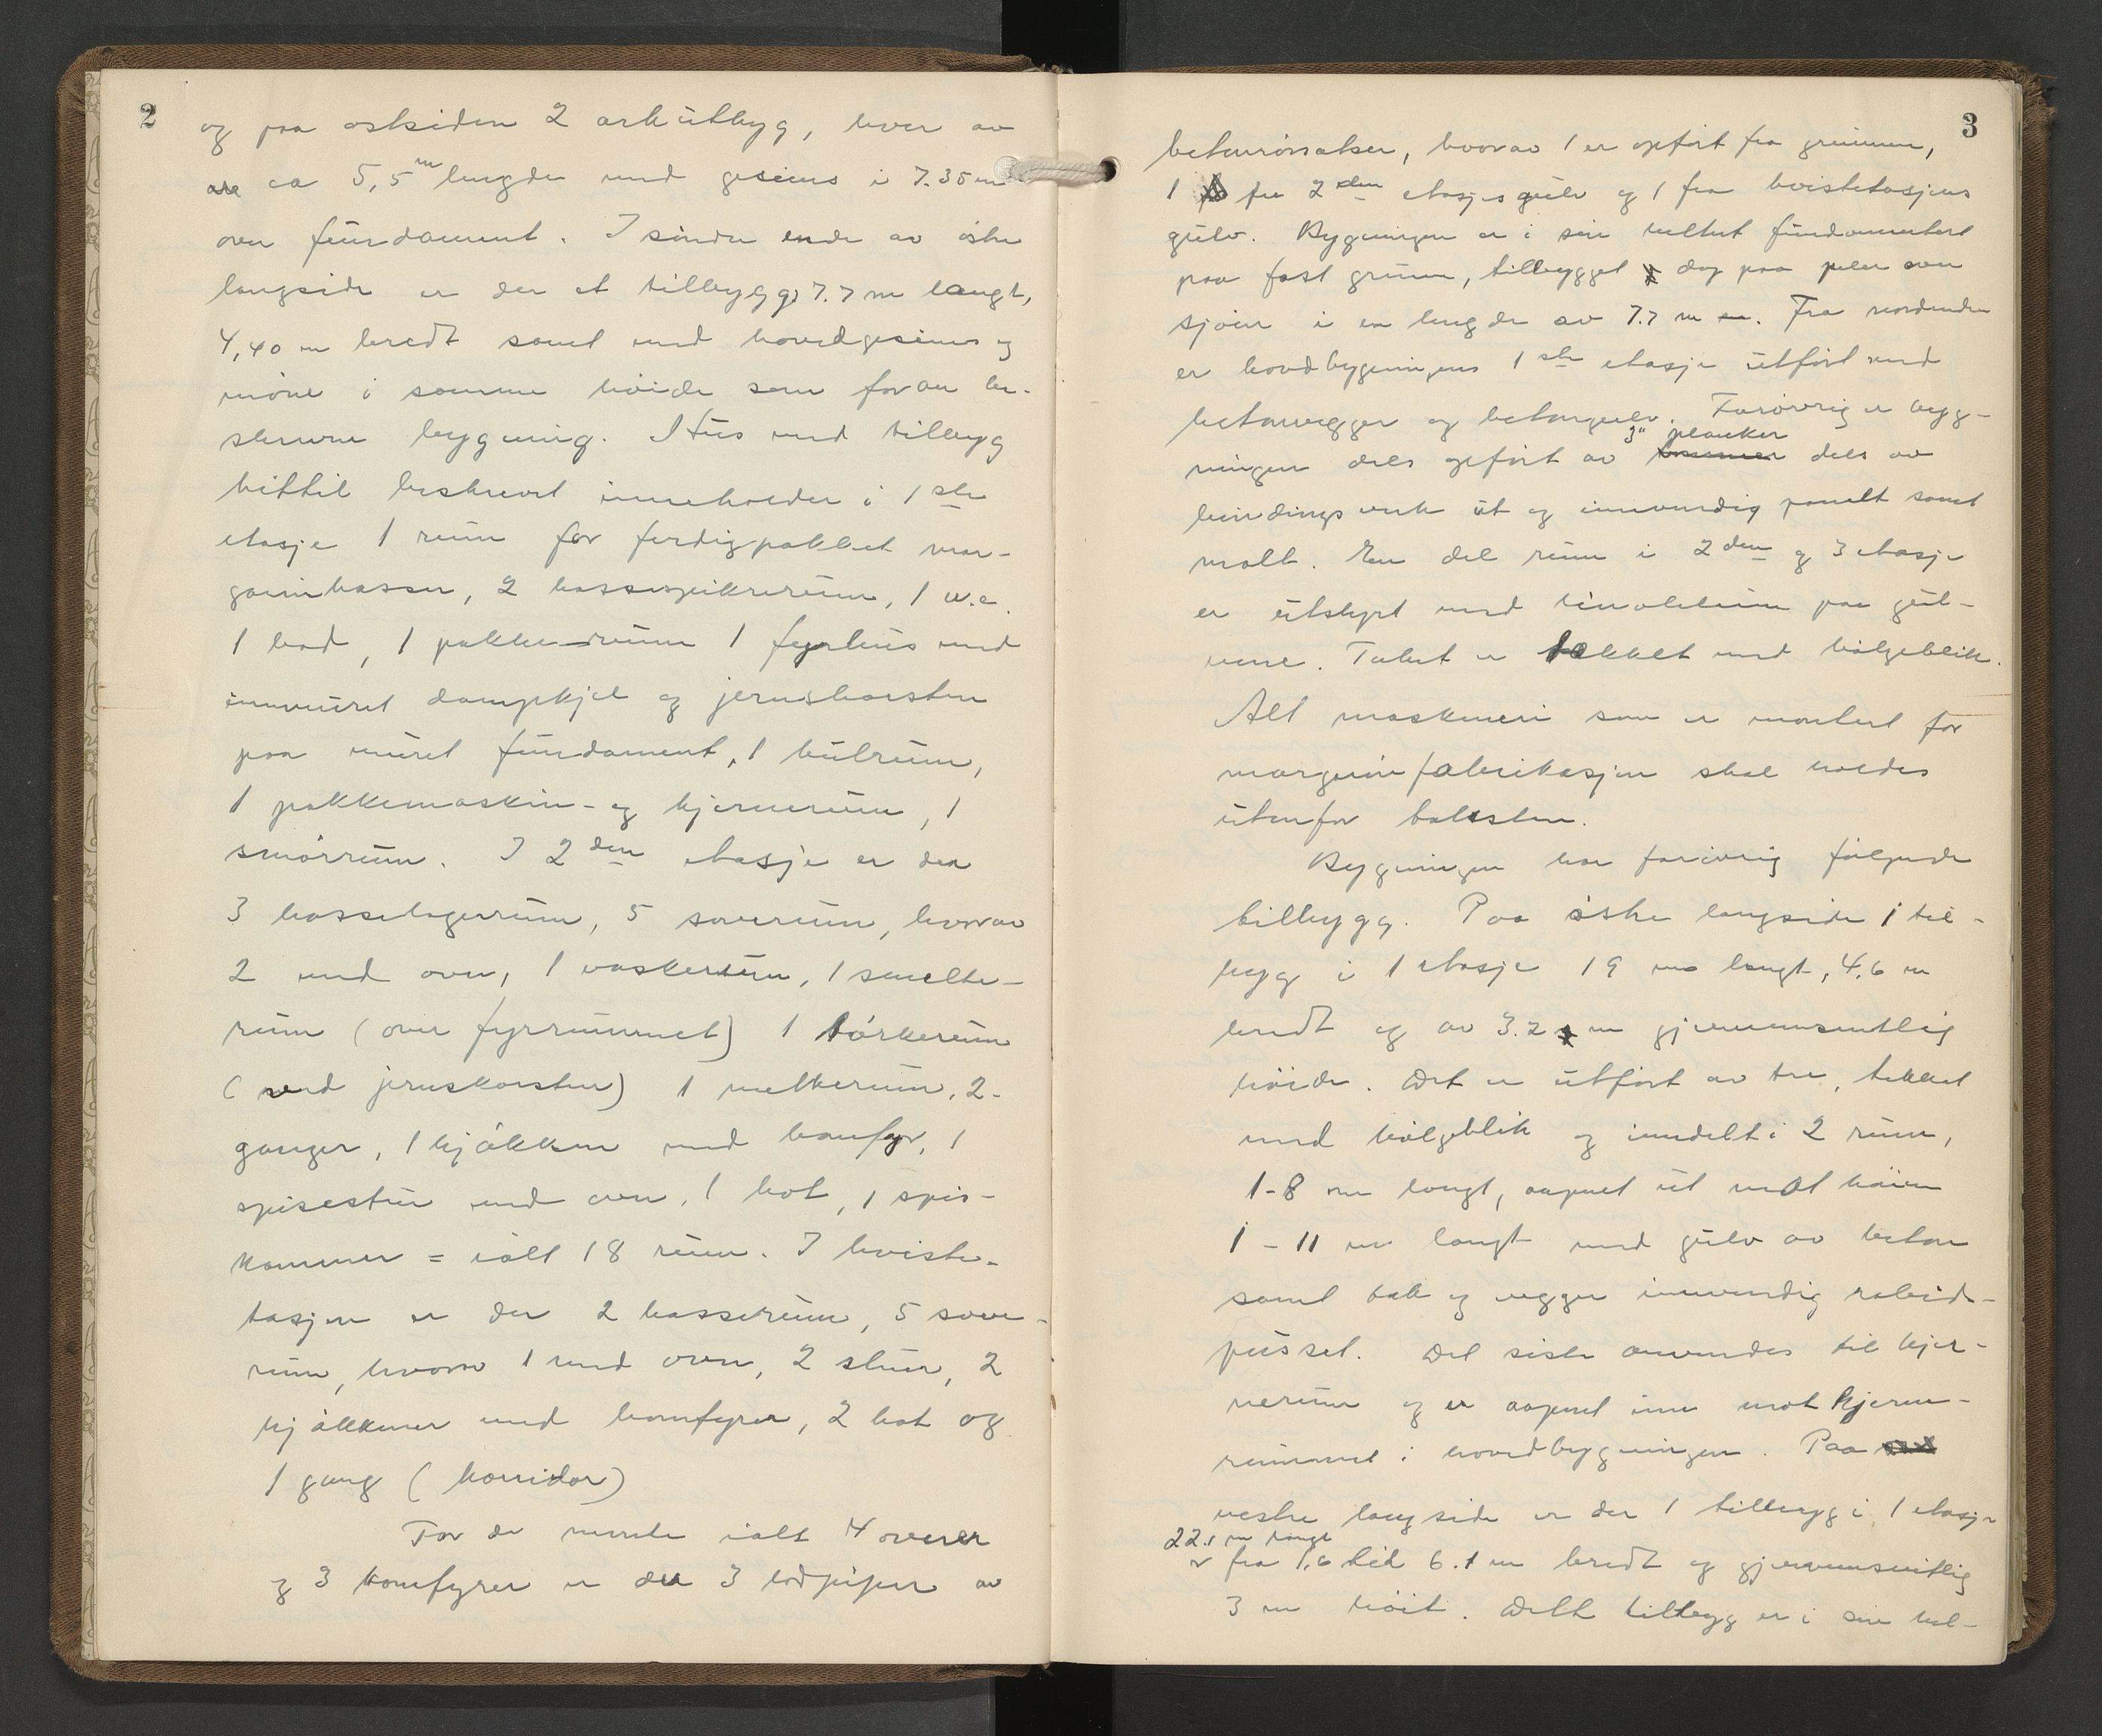 2
og paa østsiden 2 arkutbyg, hver av
ca 5,5 m lengde med gesims i 7.35 m
over fundament. I søndre ende av østre
langside er der et tilbygg 7.7 m langt,
4,40 m bredt samt med hovedgesims og
møne i samme høide som foran be-
skrevne bygning. Hus med tilbyg
hittil beskrevet inneholder i 1ste
etasje 1 rum for ferdigpakket mar-
garinkasser, 2 kassespikrerum, 1 w.c.
1 bod, 1 pakke-rum 1 fyrhus med
innmuret dampkjel og jernskorsten
paa muret fundament, 1 kulrum,
1 pakkemaskin- og kjernerum, 1
smørrum. I 2den etasje er der
3 kasselagerrum, 5 soverum, hvorav
2 med ovn, 1 vaskerum, 1 smelte-
rum (over fyrrummet) 1 tørkerum
(ved jernskorsten) 1 melkerum, 2-
ganger, 1 kjøkken med komfyr, 1
spisestue med ovn, 1 kot, 1 spis-
kammer = ialt 18 rum. I kviste-
tasjen er der 2 kasserum, 5 sove-
rum, hvorav 1 med ovn, 2 stuer, 2
kjøkkener med komfyrer, 2 kot og
1 gang (korridor)
For de nevnte ialt 4 ovner
og 3 komfyrer er der 3 lodpiper av
3
betongrørsatser, hvorav 1 er opført fra grunnen,
1 fra 2den etasjes gulv og 1 fra kvistetasjens
gulv. Bygningen er i sin helhet fundamentert
paa fast grunn, tilbygget dog paa peler over
sjøen i en lengde av 7.7 m. Fra nordenden
er hovedbygningens 1ste etasje utført med
betonvegger og betongulv. Forøvrig er byg-
3" planker
ningen dels opført av dels av
bindingsverk ut og innvendig panelt samt
malt. En del rum i 2den og 3 etasje
er utstyrt med linoleum paa gul-
vene. Taket er tekket med bølgeblik.
Alt maskineri som er montert for
margarinfabrikasjon skal holdes
utenfor taksten.
Bygningen har forøvrig følgende
tilbygg. Paa østre langside 1 til-
bygg i 1 etasje 19 m langt, 4,6 m
bredt og av 3.2 m gjennemsnitlig
høide. Det er utført av tre, tekket
med bølgeblik og inndelt i 2 rum,
1-8 m langt, aapnet ut mot kaien
1 - 11 m langt med gulv av beton
samt tak og vegger innvendig rabid-
pusset. Det siste anvendes til kjer-
nerum og er aapnet inn mot kjerne-
rummet i hovedbygningen. Paa
vestre langside er der 1 tilbyg i 1 etasje
22.1 m langt
fra 1,6 til 6.1 m bredt og gjennemsnitlig
3 m høit. Dette tilbygg er i sin hel-